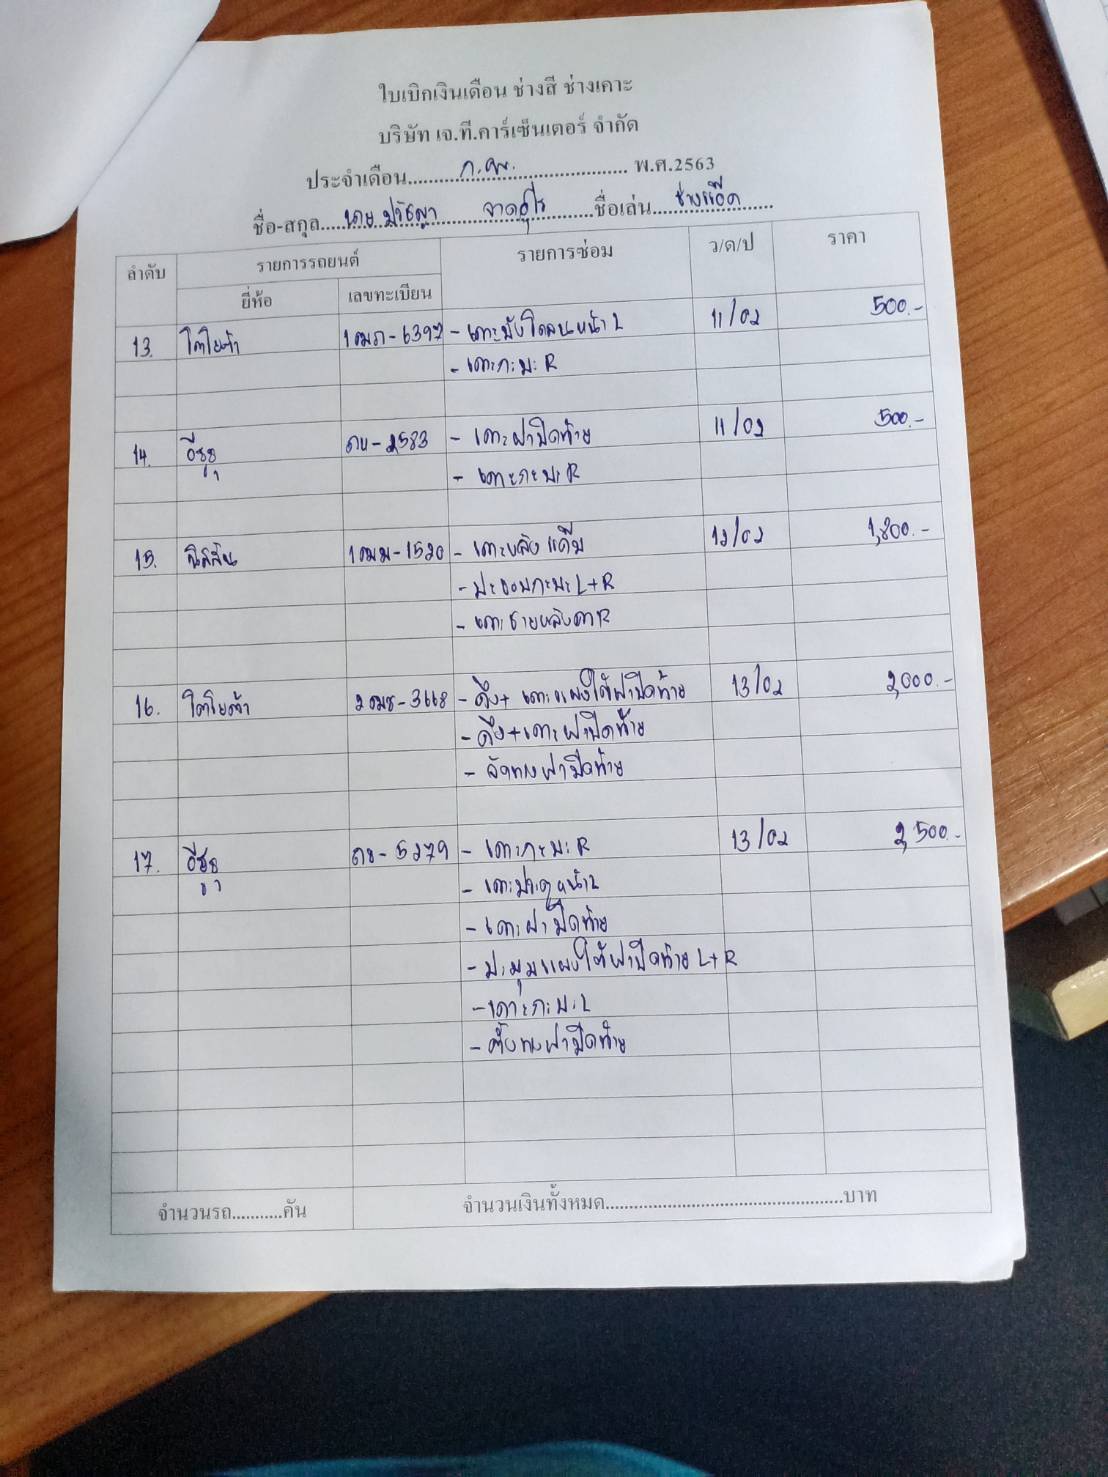 ใบเบิกเงินเดือน ช่างสี ช่างเคาะ
บริษัท เจ.ที.คาร์เซ็นเตอร์ จำกัด
ประจำเดือน..........ก.พ........................ พ.ศ.2563
ชื่อ-สกุล....นาย ปรัชญา..........ชื่อเล่น....ช่างแอ๊ด......
ลำดับ รายการรถยนต์ รายการซ่อม ว/ด/ป ราคา
ยี่ห้อ เลขทะเบียน
13. โตโยต้า 1ฒภ-6397 - เคาะบังโคลนหน้า L 11/02 500.-
- เคาะกะบะ R
14. อีซูซุ 2583 - เคาะฝาปิดท้าย 11/02 500.-
- เคาะกะบะ R
15. นิสสัน 1ฒฆ-1520 - เคาะหลังแค๊บ 12/02 1,800.-
- ปะขอบกะบะ L+R
- เคาะชายหลังคา R
16. โตโยต้า 2ฒช-3668 - ดึง+เคาะแผงใต้ฝาปิดท้าย 13/02 2,000.-
- ดึง+เคาะฝาปิดท้าย
- จัดทรงฝาปิดท้าย
17. อีซูซุ 5279 - เคาะกะบะ R 13/02 2,500.-
- เคาะประตูหน้า L
- เคาะฝาปิดท้าย
- ปะมุมแผงใต้ฝาปิดท้าย L+R
- เคาะกะบะ L
- ตั้งทรงฝาปิดท้าย
จำนวนรถ...........คัน จำนวนเงินทั้งหมด..................................................บาท